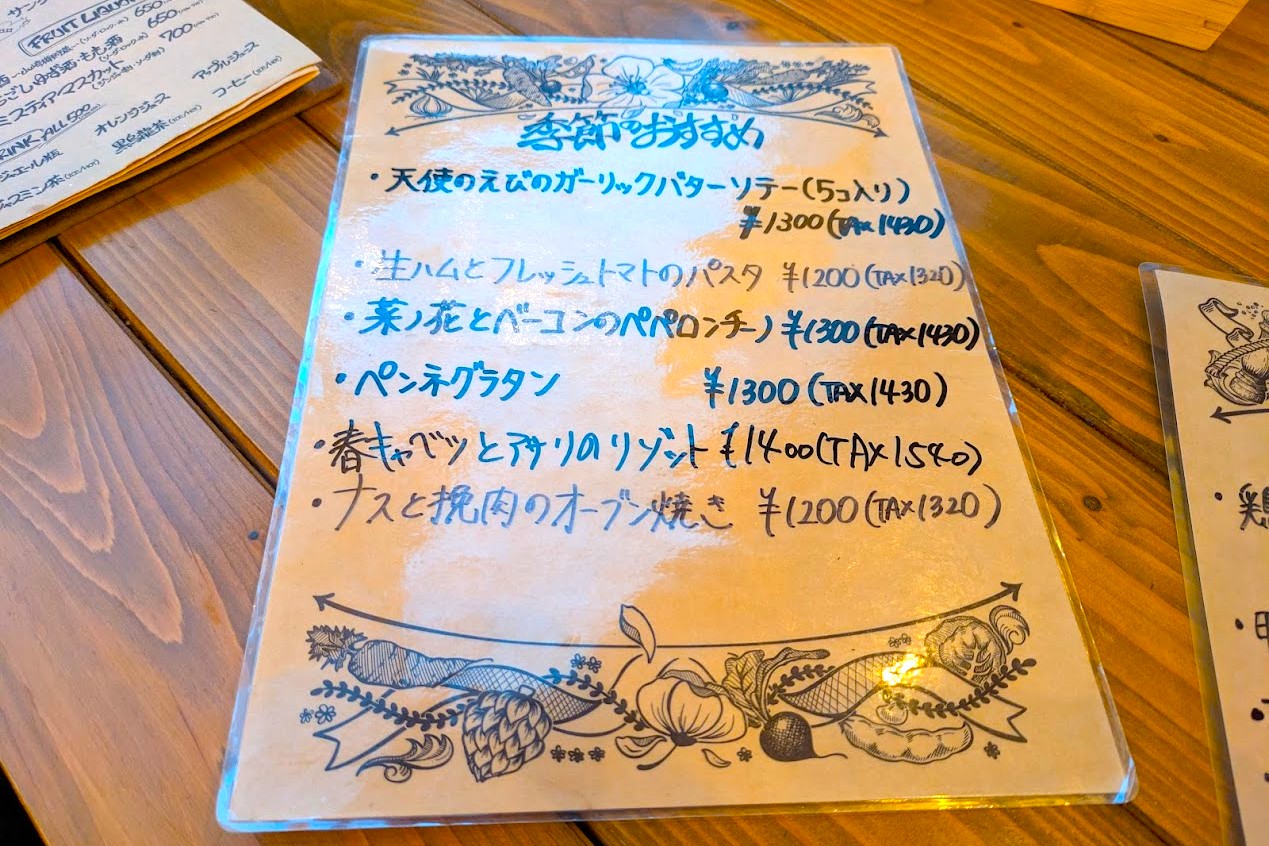 FRUIT LIQUOR
650
650
700
アップルジュース
コーヒー
オレンジジュース
黒烏龍茶
RINK ALL 500
季節のおすすめ
・天使のえびのガーリックバターソテー(5コ入り)
¥1300(TAX1430)
・生ハムとフレッシュトマトのパスタ ¥1200(TAX1320)
・菜ノ花とベーコンのペペロンチーノ ¥1300(TAX1430)
・ペンネグラタン ¥1300(TAX1430)
・春キャベツとアサリのリゾット ¥1400(TAX1540)
・ナスと挽肉のオーブン焼き ¥1200(TAX1320)